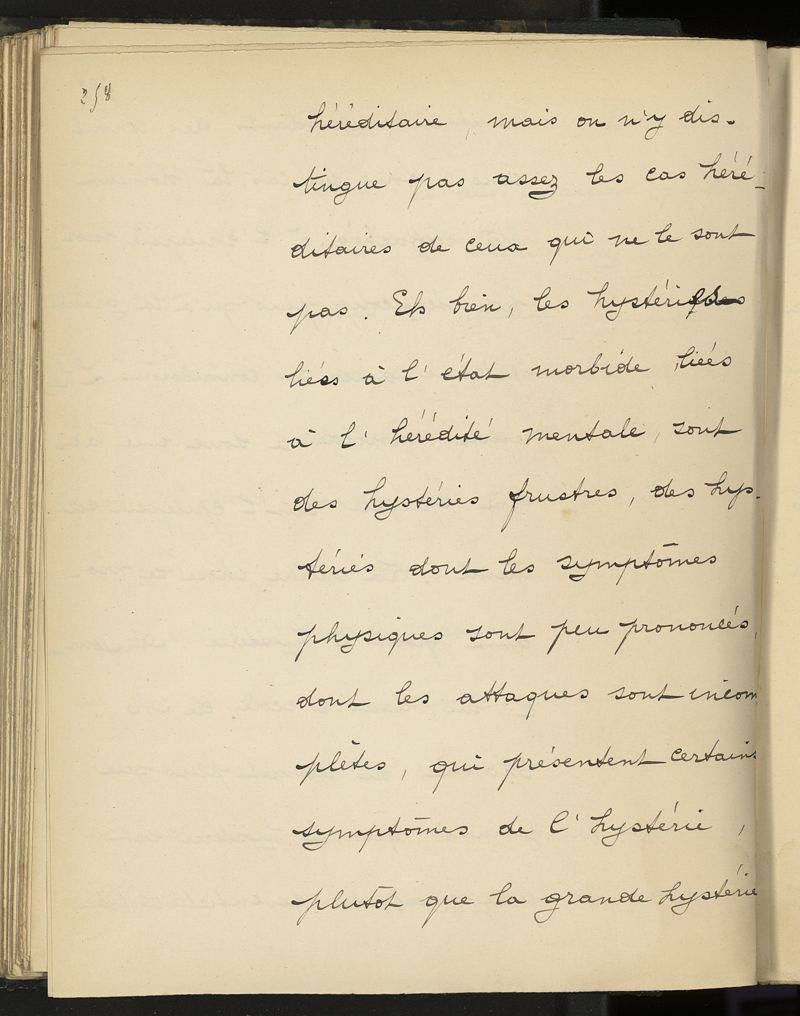 258
héréditaire, mais on n'y dis-
tingue pas assez les cas héré-
ditaires de ceux qui ne le sont
pas. Eh bien, les hystéries
liées à l'état morbide, liées
à l'hérédité mentale, sont
des hystéries frustres, des hys-
téries dont les symptômes
physiques sont peu prononcés,
dont les attaques sont incom
plètes, qui présentent certains
symptômes de l'hystérie,
plutôt que la grande hystérie